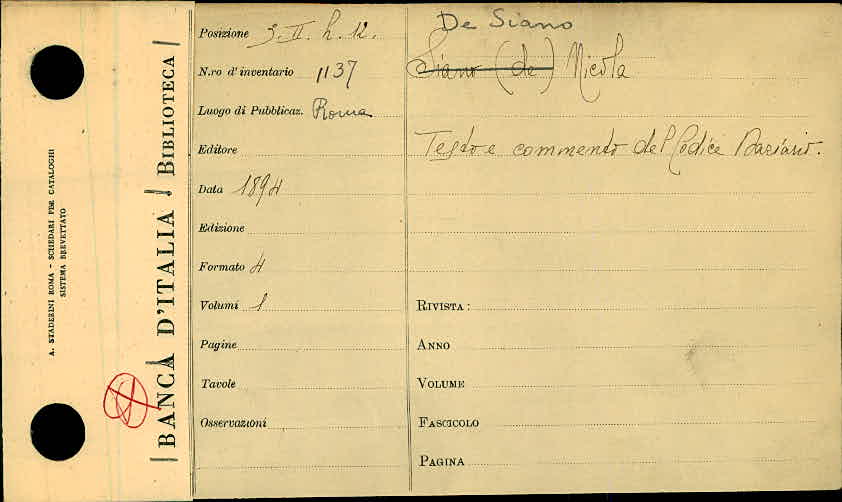 A. STADERINI ROMA - SCHEDARI PER CATALOGHI
SISTEMA BREVETTATO
BANCA D'ITALIA BIBLIOTECA
Posizione 3. II. h. 12.
N.ro d' inventario 1137
Luogo di Pubblicaz. Roma
Editore
Data 1894
Edizione
Formato 4
Volumi 1
Pagine
Tavole
Osservazioni
De Siano
Siano (de) Nicola
Testo e commento del Codice
RIVISTA :
ANNO
VOLUME
FASCICOLO
PAGINA